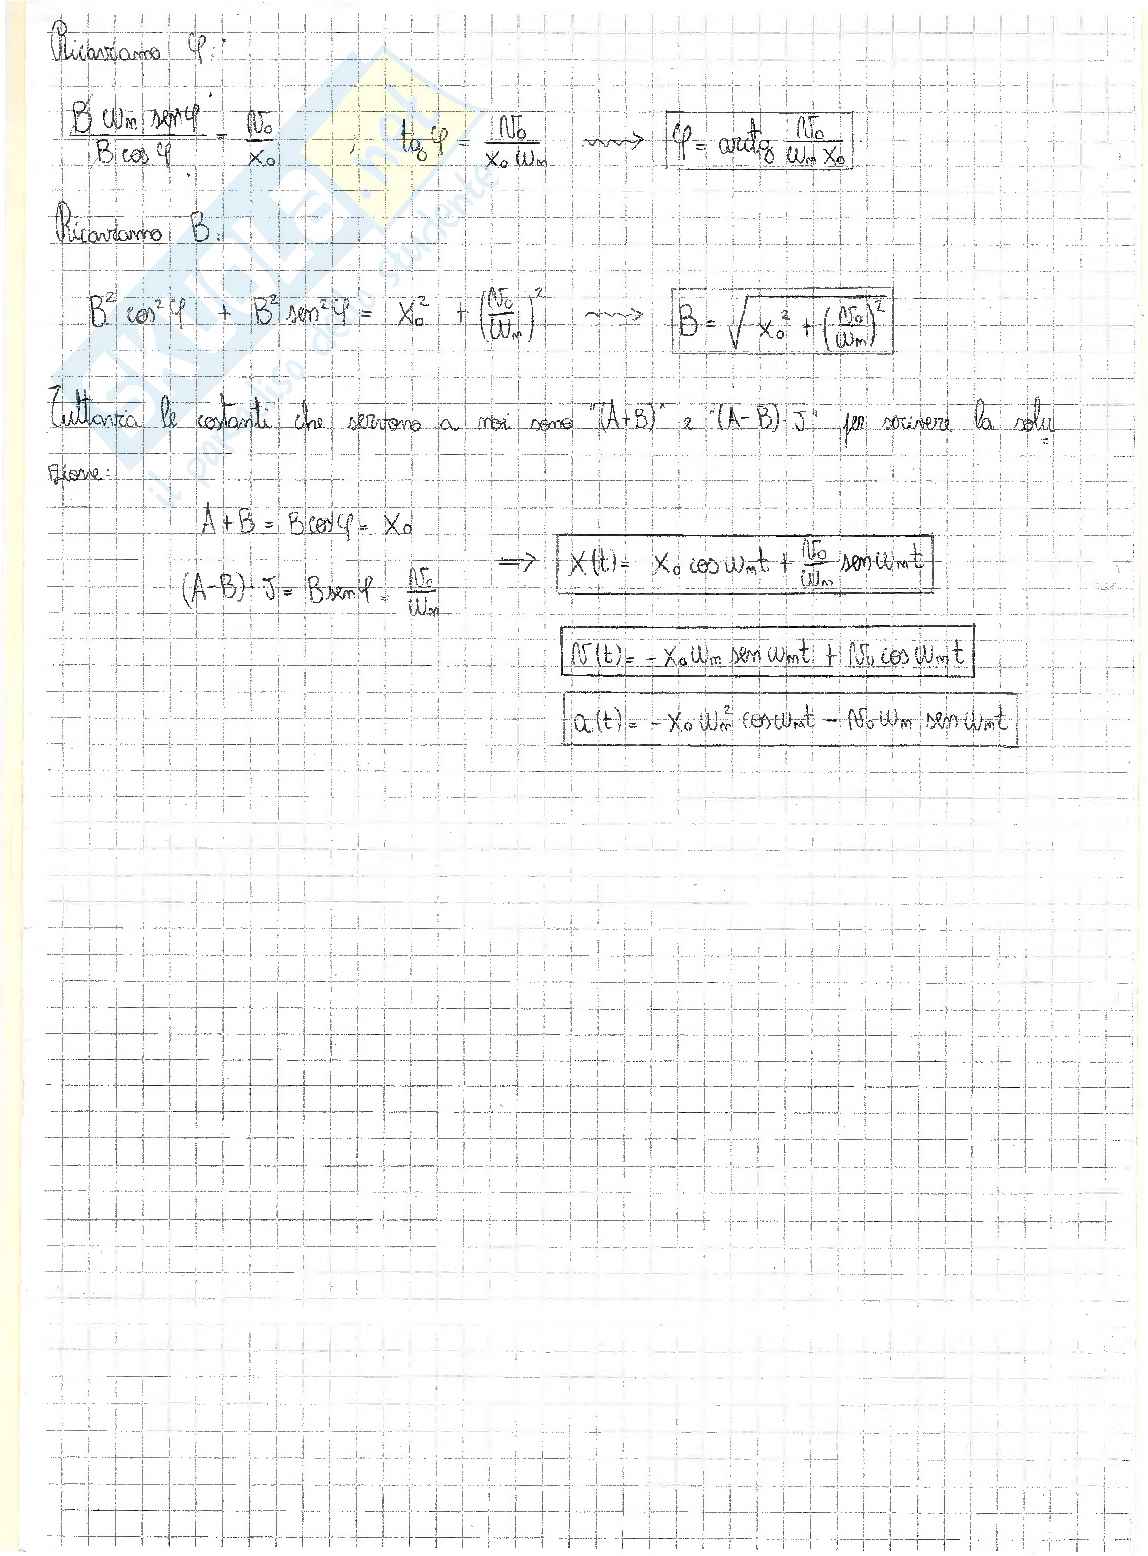 Ricaviamo φ:
B ωn sen φ / B cos φ = v0 / x0 , tg φ = v0 / x0 ωn ⟿ φ = arctg v0 / ωn x0
Ricaviamo B:
B² cos² φ + B² sen² φ = x0² + (v0 / ωn)² ⟿ B = √(x0² + (v0 / ωn)²)
Tuttavia le costanti che servono a noi sono "(A+B)" e "(A-B)·J" per scrivere la solu
zione:
A + B = B cos φ = x0
(A-B)·J = B sen φ = v0 / ωn ⇒ x(t) = x0 cos ωn t + v0 / ωn sen ωn t
v(t) = - x0 ωn sen ωn t + v0 cos ωn t
a(t) = - x0 ωn² cos ωn t - v0 ωn sen ωn t
skuola.net
il paradiso dello studente